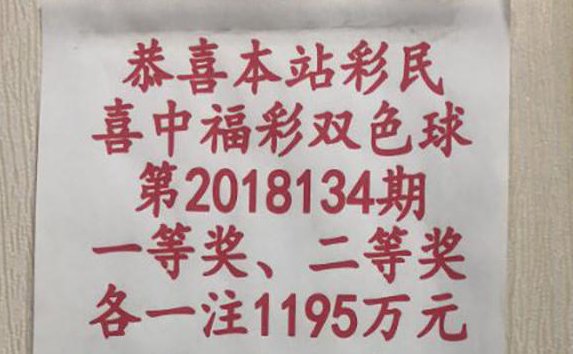 恭喜本站彩民
喜中福彩双色球
第2018134期
一等奖、二等奖
各一注1195万元